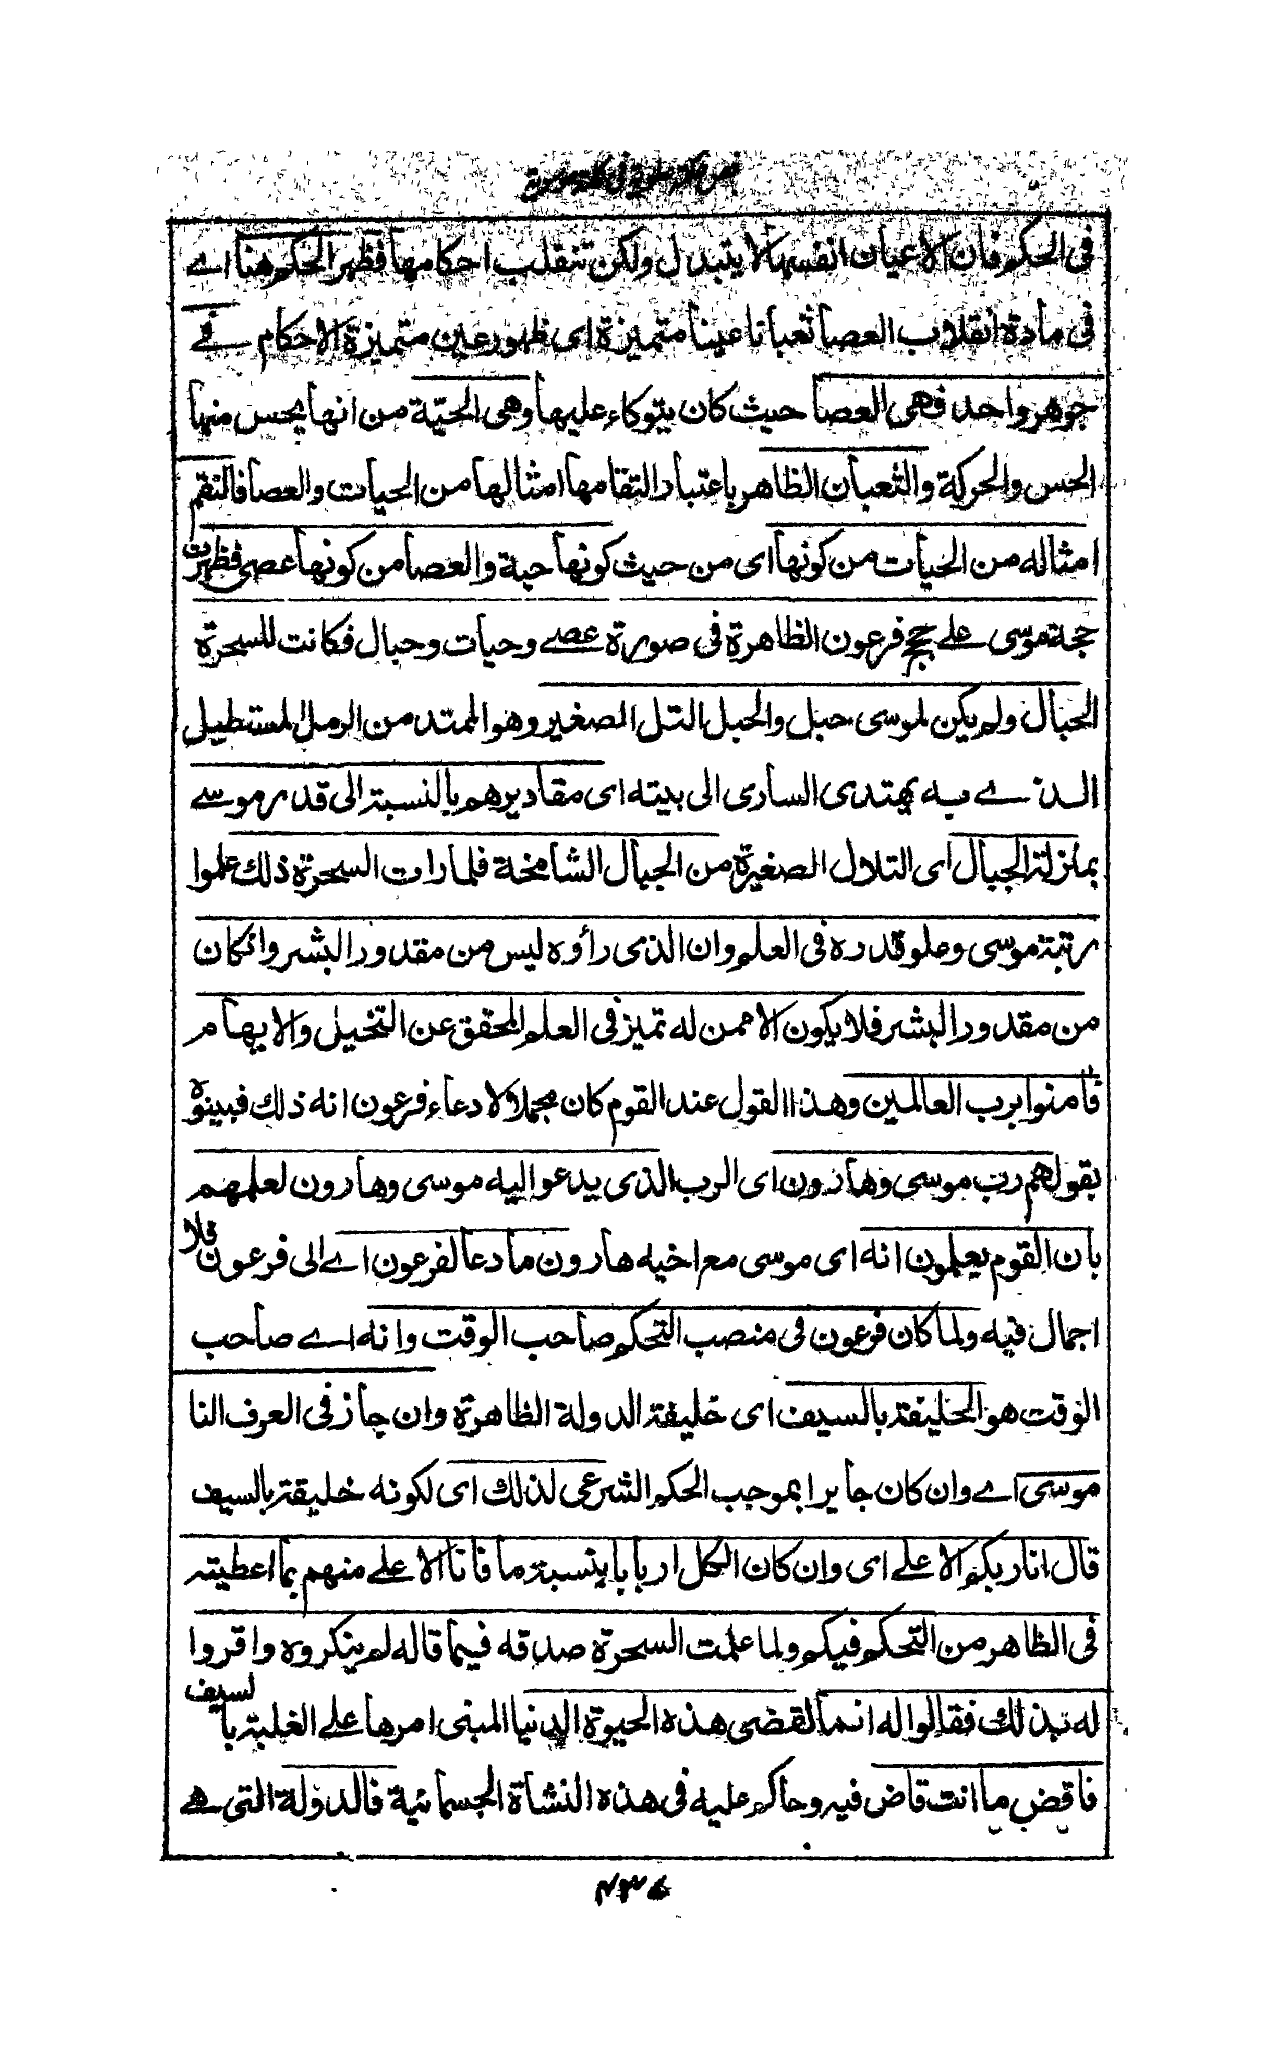 فص حكمة علوية في كلمة موسوية
فى الحكم فان الاعيان انفسها لا يتبدل ولكن تنقلب احكامها فظهر الحكم هنا اے
فى مادة انقلاب العصا ثعبانا عينا متميزة اى ظهور عين متميزة الاحكام فے
جوهر واحد فهى العصا حيث كان يتوكاء عليها وهى الحيّة من انها يحس منها
الحس والحركة والثعبان الظاهر باعتبار التقامها امثالها من الحيات والعصا فالتقم
امثاله من الحيات من كونها اى من حيث كونها حية والعصا من كونها عصى فظهرت
حجة موسى علے حجج فرعون الظاهرة فى صورة عصے وحيات وحبال فكانت للسحرة
الحبال ولم يكن لموسى حبل والحبل التل الصغير وهو الممتد من الرمل المستطيل
الذے به يهتدى السارى الى بيته اى مقاديرهم بالنسبة الى قدر موسے
بمنزلة الجبال اى التلال الصغيرة من الجبال الشامخة فلما رات السحرة ذلك علموا
رتبة موسى وعلو قدره فى العلم وان الذى رأوه ليس من مقدور البشر وانكان
من مقدور البشر فلا يكون الا ممن له تميز فى العلم المحقق عن التخيل والايهام
فآمنوا برب العالمين وهذا القول عند القوم كان مجملا ولا دعاء فرعون انه ذلك فبينوه
بقولهم رب موسى وهارون اى الرب الذى يدعو اليه موسى وهارون لعلمهم
بان القوم يعلمون انه اى موسى مع اخيه هارون ما دعا لفرعون اے الى فرعون فلا
اجمال فيه ولما كان فرعون فى منصب التحكم صاحب الوقت وانه اے صاحب
الوقت هو الخليفة بالسيف اى خليفة الدولة الظاهرة وان جاز فى العرف النا
موسى اے وان كان جايرا بموجب الحكم الشرعى لذلك اى لكونه خليفة بالسيف
قال انا ربكم الاعلے اى وان كان الكل اربابا بنسبة ما فانا الاعلے منهم بما اعطيته
فى الظاهر من التحكم فيكم ولما علمت السحرة صدقه فيما قاله لم ينكروه واقروا
له بذلك فقالوا له انما تقضى هذه الحيوة الدنيا المبنى امرها علے الغلبة بالسيف
فاقض ما انت قاض فيه وحاكم عليه فى هذه النشاة الجسمانية فالدولة التى هے